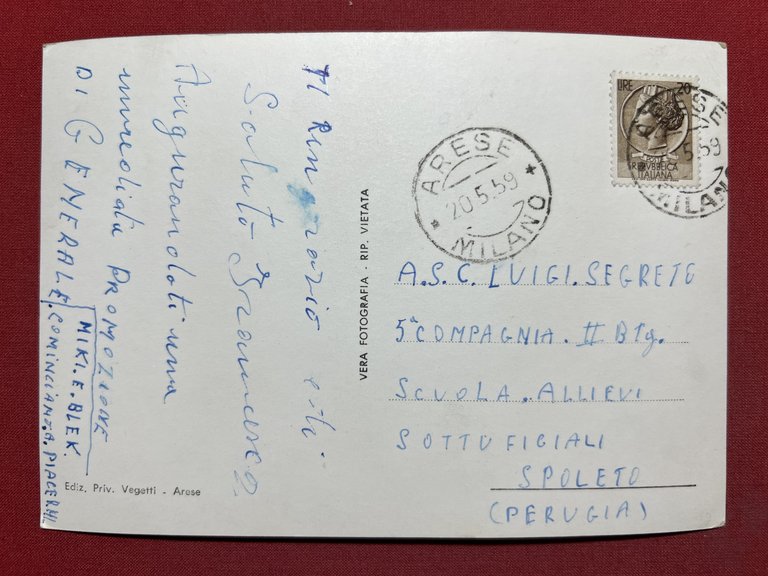 Ti Ringrazio e ti
Saluto Francesco
Augurandoti una
immediata PROMOZIONE
DI GENERALE.
MIKI. E. BLEK.
COMINCIANO. A. PIACERMI.
Ediz. Priv. Vegetti - Arese
VERA FOTOGRAFIA - RIP. VIETATA
LIRE 20
REPVBBLICA
ITALIANA
ARESE
20.5.59
* MILANO *
ARESE
5.59
MILANO
A.S.C. LUIGI. SEGRETO
5ª COMPAGNIA. II Btg.
SCUOLA. ALLIEVI
SOTTUFICIALI
SPOLETO
(PERUGIA)